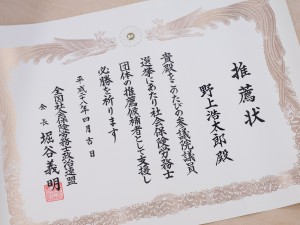 推薦状
野上浩太郎殿
貴殿をこのたびの参議院議員
選挙にあたり社会保険労務士
団体の推薦候補者として支援し
必勝を祈ります
平成二八年四月吉日
全国社会保険労務士政治連盟
会長 堀谷義明